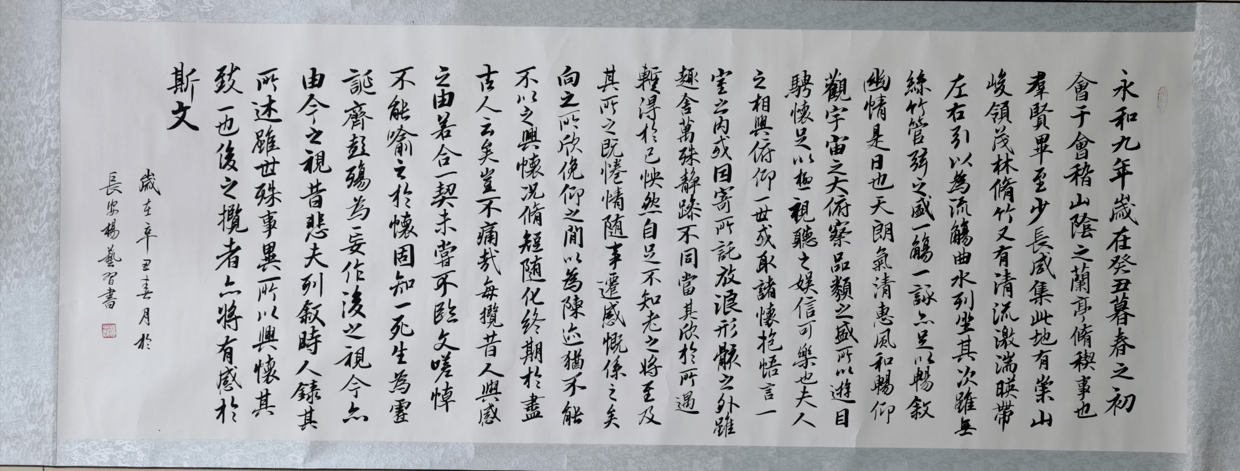 永和九年歲在癸丑暮春之初
會于會稽山陰之蘭亭脩稧事也
羣賢畢至少長咸集此地有崇山
峻領茂林脩竹又有清流激湍暎帶
左右引以為流觴曲水列坐其次雖無
絲竹管弦之盛一觴一詠亦足以暢敘
幽情是日也天朗氣清惠風和暢仰
觀宇宙之大俯察品類之盛所以遊目
騁懷足以極視聽之娛信可樂也夫人
之相與俯仰一世或取諸懷抱悟言一
室之內或因寄所託放浪形骸之外雖
趣舍萬殊靜躁不同當其欣於所遇
蹔得於己怏然自足不知老之將至及
其所之既惓情隨事遷感慨係之矣
向之所欣俛仰之閒以為陳迹猶不能
不以之興懷況脩短隨化終期於盡
古人云矣豈不痛哉每攬昔人興感
之由若合一契未嘗不臨文嗟悼
不能喻之於懷固知一死生為虛
誕齊彭殤為妄作後之視今亦
由今之視昔悲夫列敘時人錄其
所述雖世殊事異所以興懷其
致一也後之攬者亦將有感於
斯文
歲在辛丑春月於
長安楊藝習書